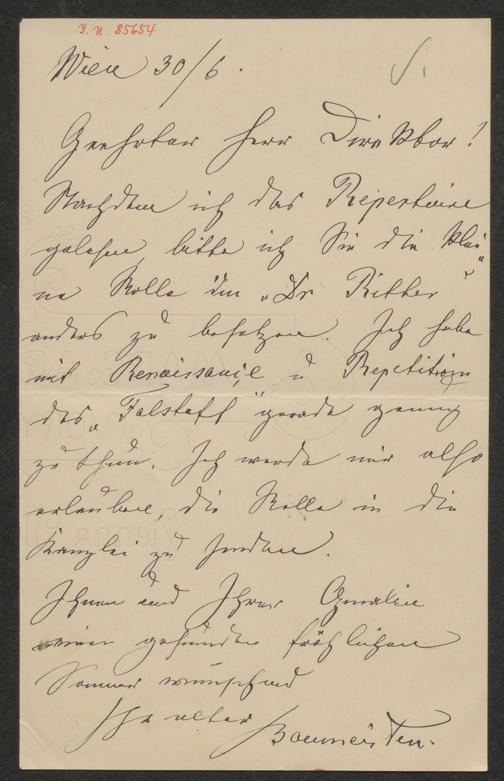 J. N. 85654
Wien 30/6.
Geehrter Herr Direktor!
Nachdem ich das Repertoire
gelesen, bitte ich Sie die klei
ne Rolle im „Dr Ritter"
anders zu besetzen. Ich habe
mit Renaissance u Repetition
des „Falstaff" gerade genug
zu thun. Ich werde mir also
erlauben, die Rolle in die
Kanzlei zu senden.
Ihnen und Ihrer
einen gesunden fröhlichen
Sommer wünschend
Ihr alter
Baumeister.